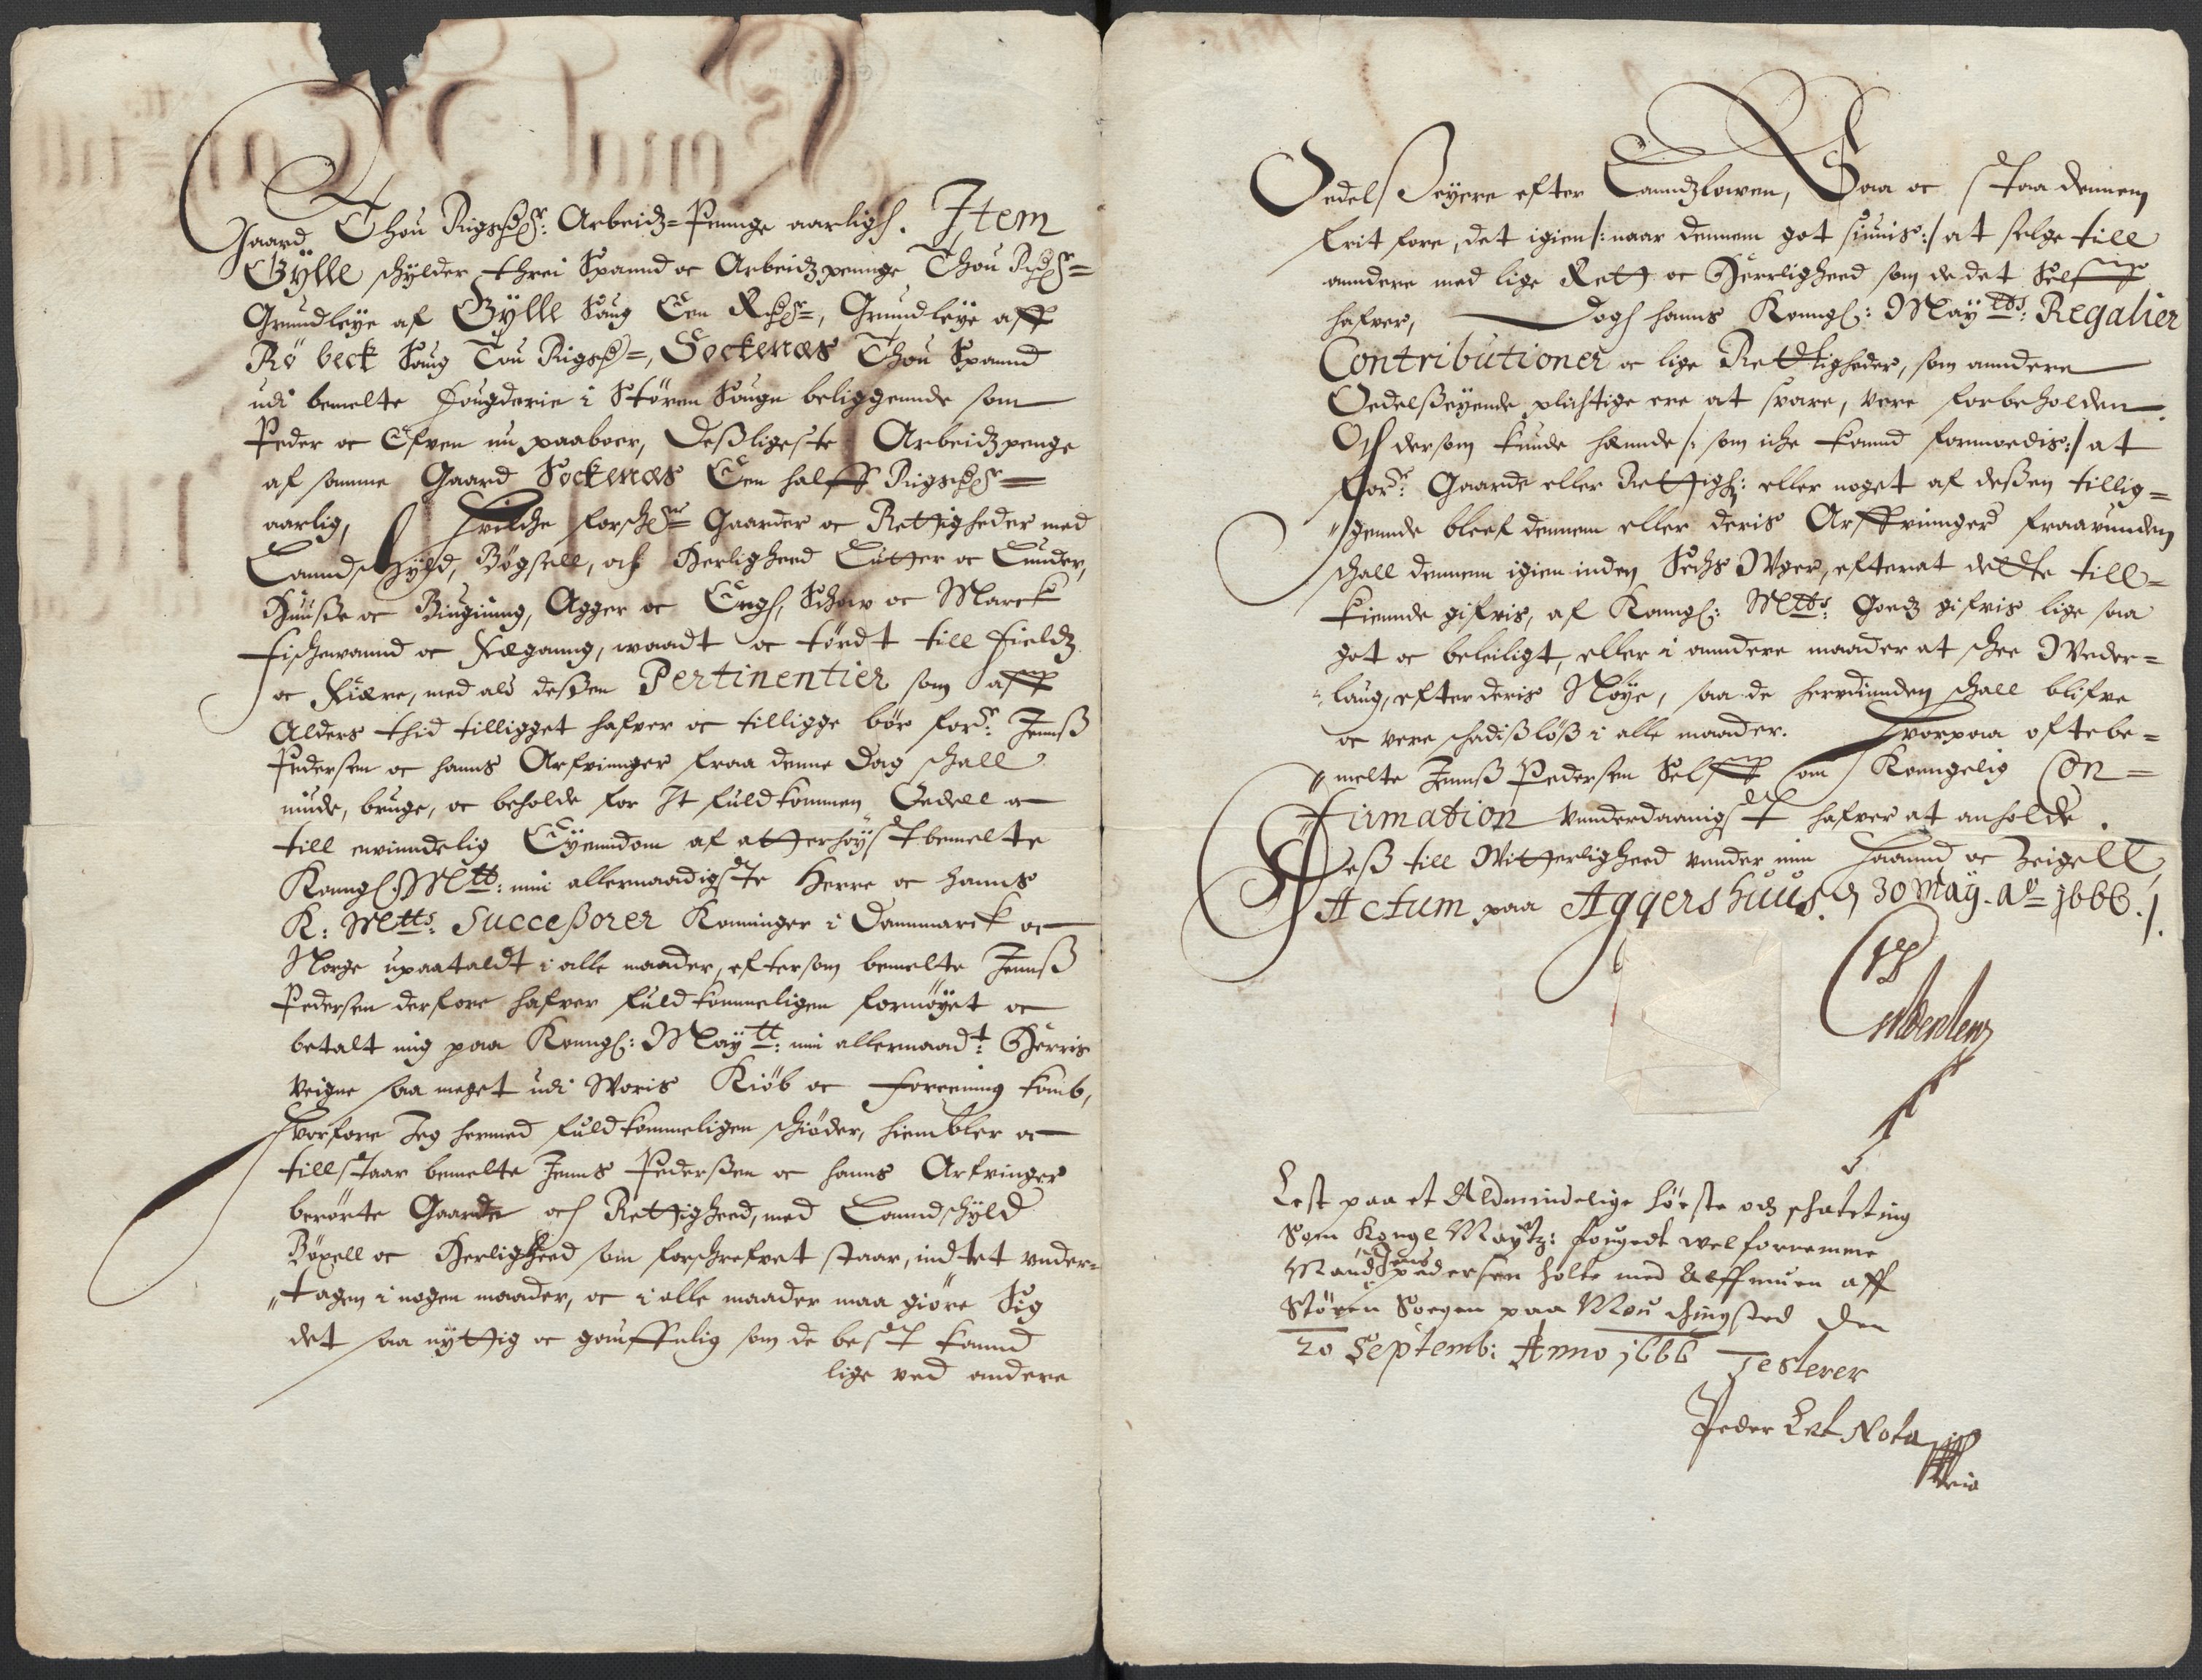 Gaard Thou Rigsdlr: Arbeidz-Pennge aarligh. Item
Gylle schylder threi Spannd oc Arbeidzpennge Thou Rdlr=
Grundleye af Gylle Saug Een Rdlr=, Grundleye aff
Rö beck Saug Tou Rigsd=, Sockenæs Thou Spannd
udi bemelte Fougderie i Stören Sougn beliggennde som
Peder oc Efven nu paaboer, Desligeste Arbeidzpenge
af samme Gaard Sockenæs Een halff Rigsdlr=
aarlig, Hvilche forschne Gaarder oc Rettigheder med
Lanndschyld, Bögsell, och Herligheed Lutter oc Lunder,
Huuse oc Biugning, Agger oc Engh, Schow oc Marck
Fischewannd oc Fæganng, waadt oc tördt till Fieldz
oc Fiære, med als dessen Pertinentier som aff
Alders thid tilligget hafver oc tilligge bör forne: Jennß
Pedersen oc hanns Arfvinger fraa denne Dag schall
niude, bruge, oc beholde for It fuldkommen Oedell oc
till evinndelig Eyenndom af atterhöystbemelte
Konngl: Mtt: min allernaadigste Herre oc hanns
K: Metts: Succeßorer Konninger i Dannmarck oc
Norge upaataldt i alle maader, eftersom bemelte Jennß
Pedersen derfore hafver fuldkommeligen fornöyet oc
betalt mig paa Konngl: Maytt: min allernaadt: Herris
veigne saa meget udi Woris Kiöb oc foreening komb,
Hvorfore Jeg hermed fuldkommeligen schiöder, hiembler oc
tillstaar bemelte Jenns Pederßen oc hanns Arfvinger
berörte Gaarde och Rettigheed, med Lanndschyld
Böxell oc Herligheed som forschrefvet staar, indtet under=
"tagen i nogen maader, oc i alle maader maa giöre Sig
det saa nyttig oc gaufftnlig som de best kannd
lige ved andere
Oedelßeyere efter Lanndzlowen, Saa oc staa dennem
frit fore, det igien /: naar dennem got siunis :/ at selge till
anndere med lige Rett oc Herrligheed som de det Selff
hafver, Dogh hanns Konngl: Maytts: Regalier
Contributioner oc lige Rettigheder, som anndere
Oedelßeyende plichtige ere at svare, vere forbeholden.
Och dersom kunde hennde /: som iche kannd formoedis :/ at
forne: Gaarde eller Rettigh: eller noget af deßen tillig=
"gennde bleef dennem eller deris Arffvinnger fraavunden
schall dennem igien inden Sechs Uger, efterat dette till=
kiennde gifvis, af Konngl: Mtts: Goedz gifvis lige saa
got oc beleiligt, eller i anndere maader at schee Weder=
"laug, efter deris Nöye, saa de herudinnden schall blifve
oc vere schadißlöß i alle maader. Hvorpaa oftebe=
"melte Jennß Pedersen Selff om Konngelig Con=
"firmation Unnderdaanigst hafver at anholde.
Deß till Witterligheed under min Haannd oc Zeigell,
Actum paa Aggershuus. d 30 May. Ao 1666./.
Lest paa et Aldmindelige höste och schatting
Som Kongl Maytz: fougedt welfornemme
Mand Jens Pedersen holte med Alffmuen aff
Stören Soegen paa Mou thingsted Den
20 Septemb: Anno 1666 Testerer